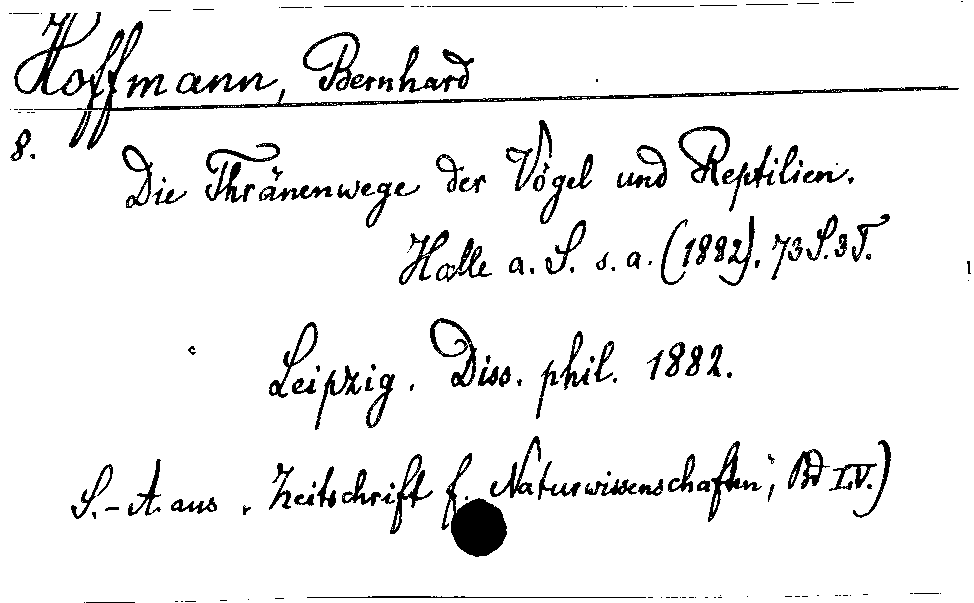 Hoffmann, Bernhard
8.
Die Thränenwege der Vögel und Reptilien.
Halle a. S. s. a. (1882). 73 S. 3 T.
Leipzig. Diss. phil. 1882.
S.-A. aus „Zeitschrift f. Naturwissenschaften", Bd LV.)